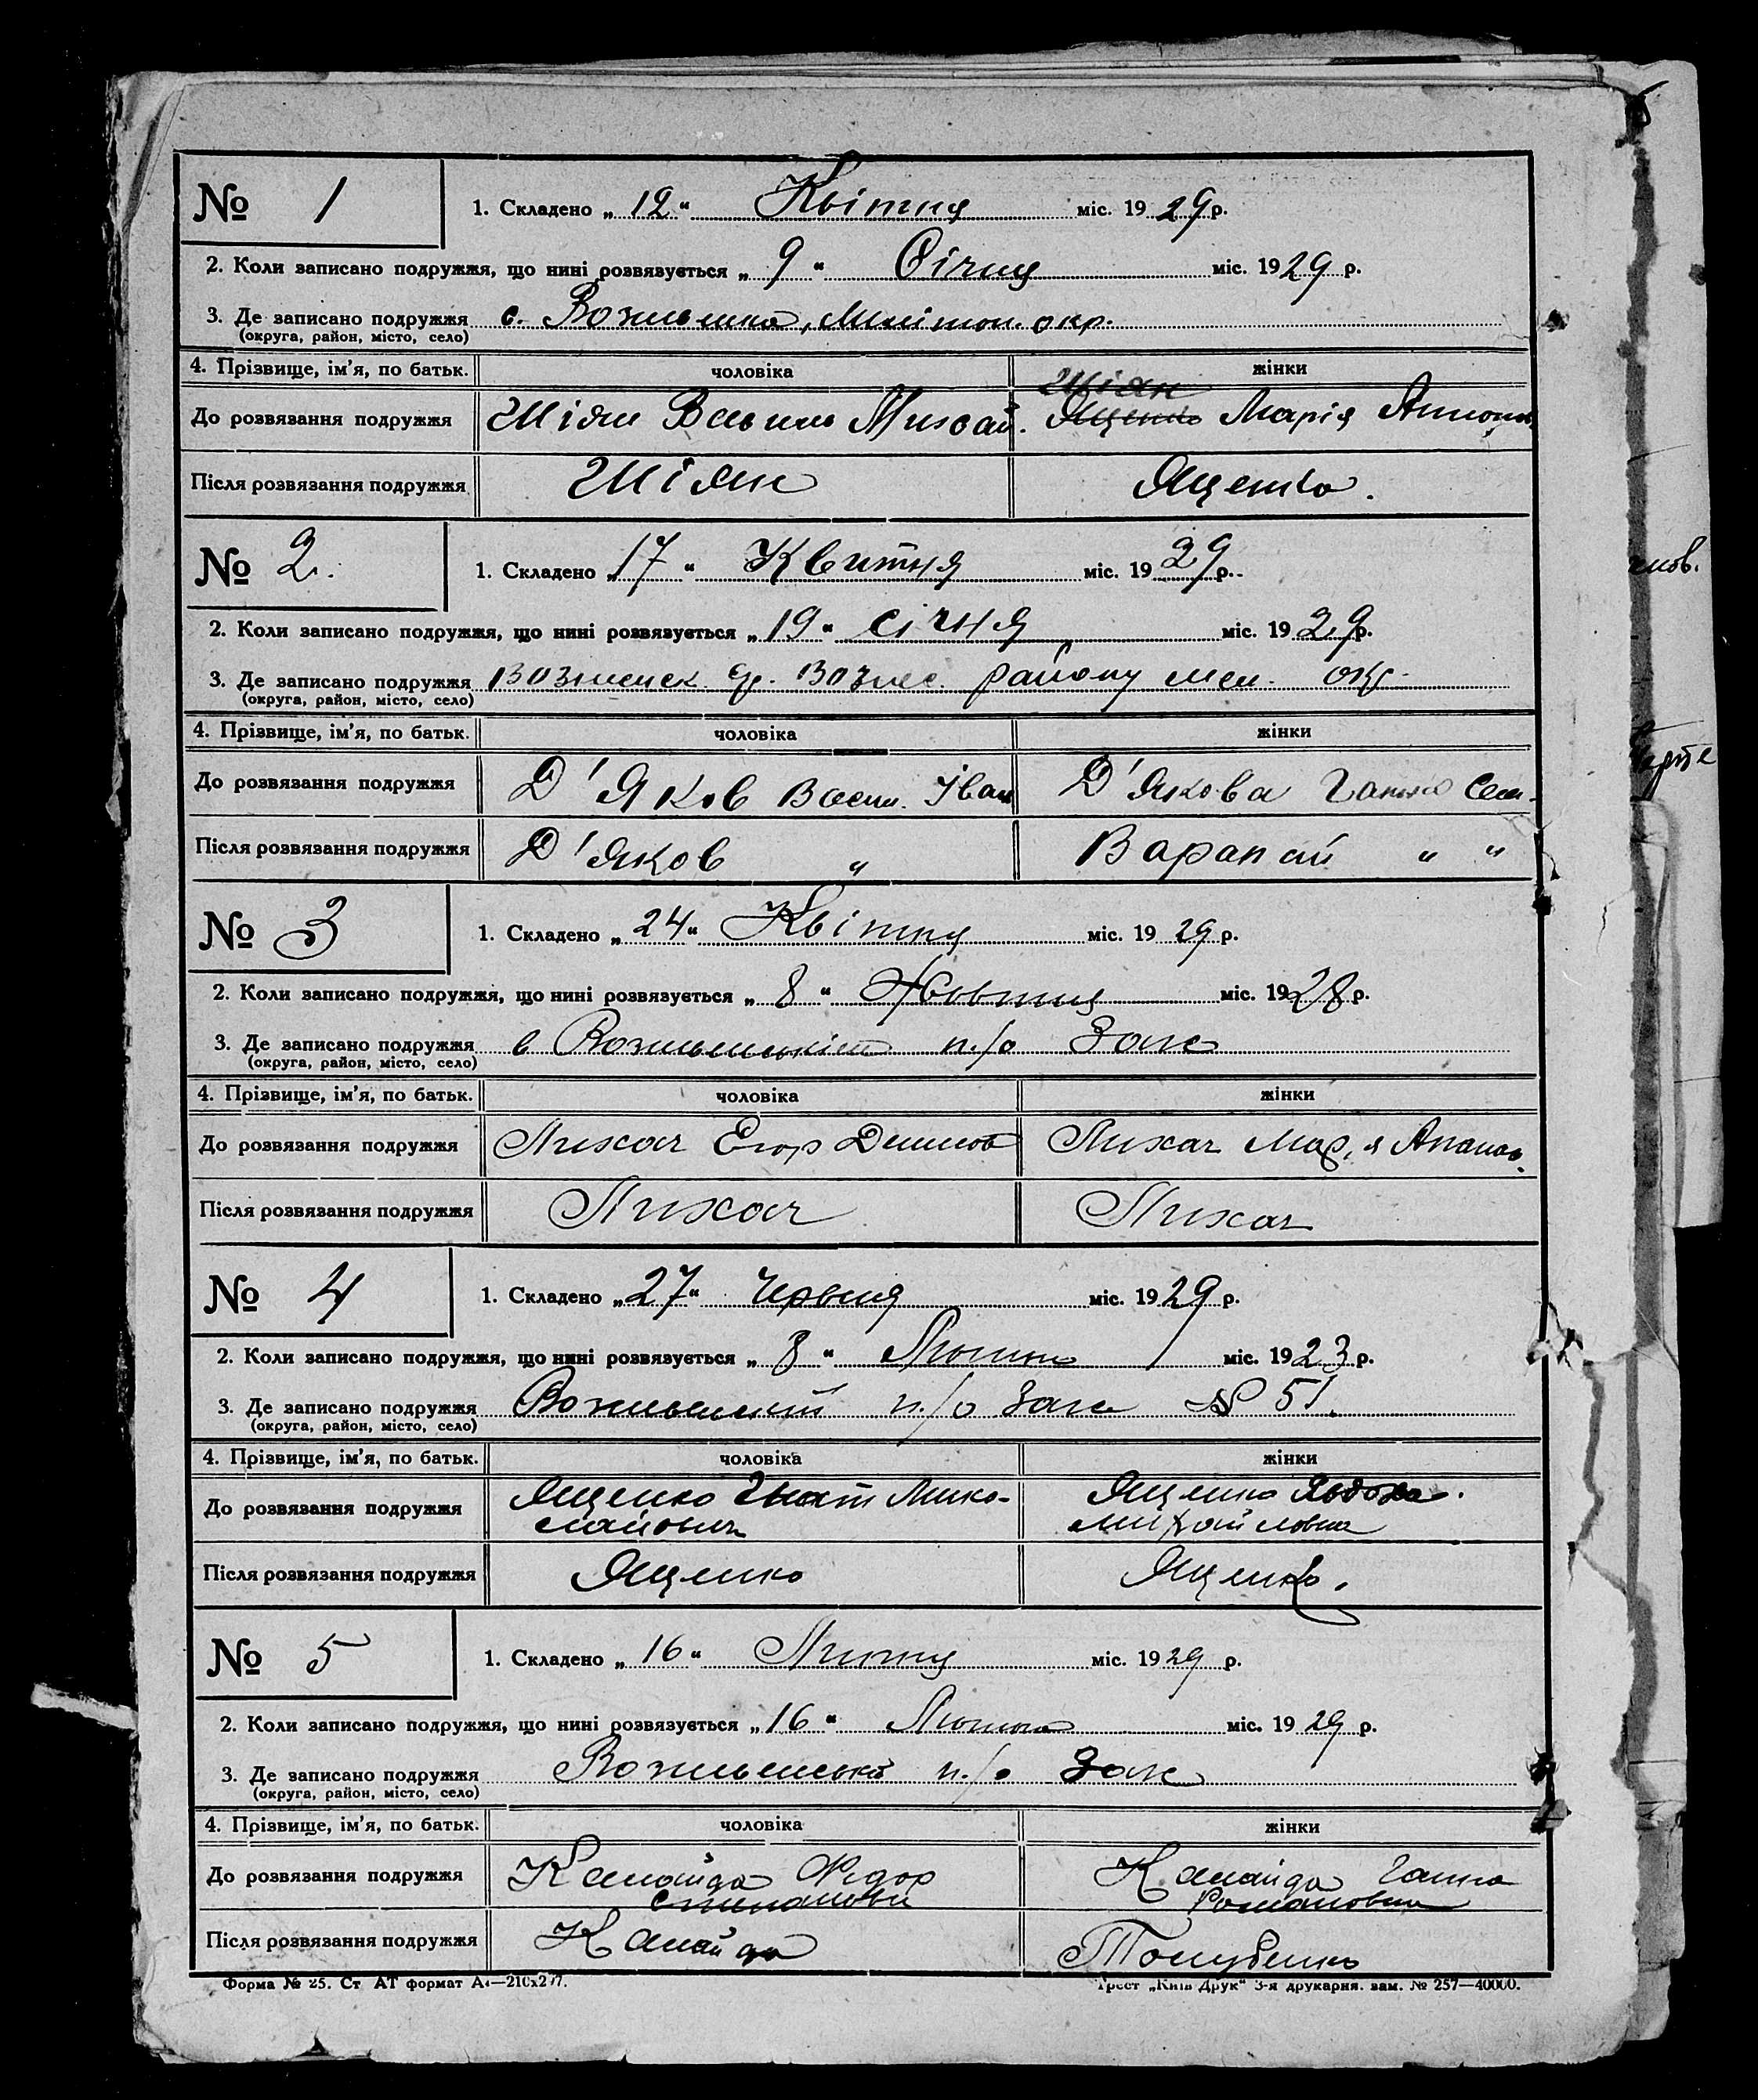 № 1
1. Складено „ 12 “ Квітня міс. 1929 р.
2. Коли записано подружжя, що нині розвязується „ 9 “ Січня міс. 1929 р.
3. Де записано подружжя с. , окр.
(округа, район, місто, село)
4. Прізвище, ім'я, по батьк. чоловіка жінки
Шіян
До розвязання подружжя Шіян Василь Михай. Ященко Марія Антонів.
Після розвязання подружжя Шіян Ященко.
№ 2.
1. Складено „ 17 “ Квитня міс. 1929 р.
2. Коли записано подружжя, що нині розвязується „ 19 “ січня міс. 1929 р.
3. Де записано подружжя Вознесенск Вознес. району мел. окр.
(округа, район, місто, село)
4. Прізвище, ім'я, по батьк. чоловіка жінки
До розвязання подружжя Д'Яков Васил. Іван Д'якова Ганна Сем.
Після розвязання подружжя Д'яков „ Варапай „ „
№ 3
1. Складено „ 24 “ Квітня міс. 1929 р.
2. Коли записано подружжя, що нині розвязується „ 8 “ Жовтня міс. 1928 р.
3. Де записано подружжя в п./о Загс
(округа, район, місто, село)
4. Прізвище, ім'я, по батьк. чоловіка жінки
До розвязання подружжя Лихач Егор Денисов Лихач Марія Апанас.
Після розвязання подружжя Лихач Лихач
№ 4
1. Складено „ 27 “ Червня міс. 1929 р.
2. Коли записано подружжя, що нині розвязується „ 8 “ Лютого міс. 1923 р.
3. Де записано подружжя п/о Загс № 51.
(округа, район, місто, село)
4. Прізвище, ім'я, по батьк. чоловіка жінки
До розвязання подружжя Ященко Гнат Мико- Ященко Явдоха.
лайович Михайловна
Після розвязання подружжя Ященко Ященко.
№ 5
1. Складено „ 16 “ Липня міс. 1929 р.
2. Коли записано подружжя, що нині розвязується „ 16 “ Лютого міс. 1929 р.
3. Де записано подружжя п./о Загс
(округа, район, місто, село)
4. Прізвище, ім'я, по батьк. чоловіка жінки
До розвязання подружжя Канайда Федор Канайда Ганна
Степанови Романовна
Після розвязання подружжя Канайда Голубенко
Форма № 25. Ст. АТ формат А4—210х297. Трест „Київ-Друк“ 3-я друкарня. зам. № 257—40000.